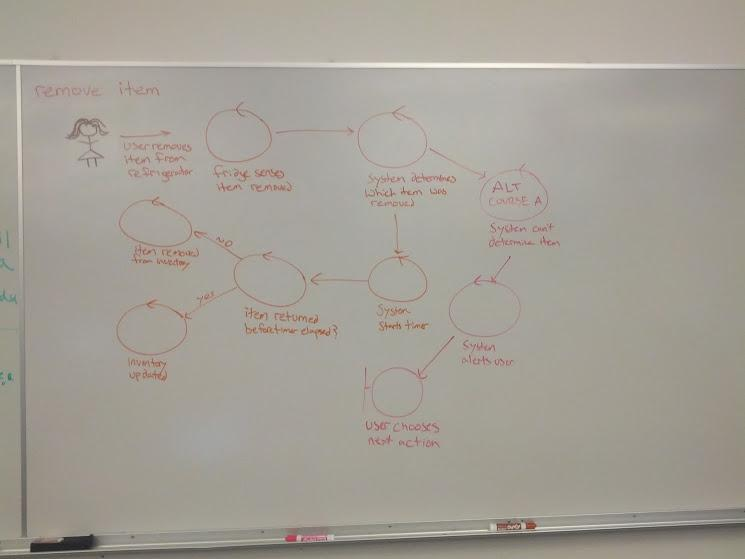 remove item
User removes
item from
refrigerator
fridge senses
item removed
System determines
which item was
removed
ALT
COURSE A
System can't
determine item
System
alerts user
User chooses
next action
System
starts timer
item returned
before timer elapsed?
no
item removed
from inventory
yes
Inventory
updated